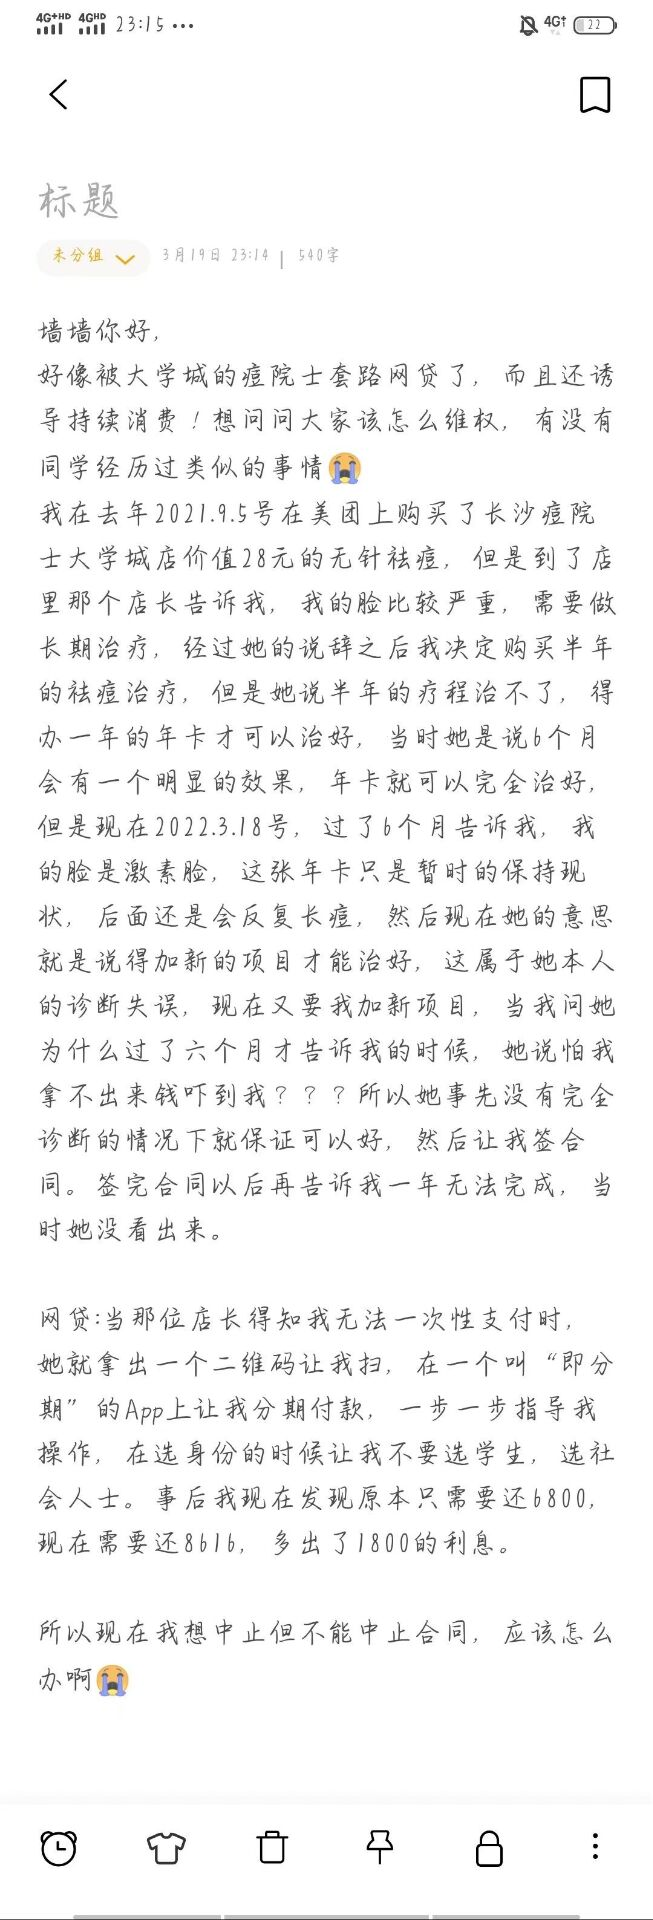 4G+HD 4GHD 23:15 ••• 4G↑ 22
标题
未分组 3月19日 23:14 | 540字
墙墙你好,
好像被大学城的痘院士套路网贷了,而且还诱
导持续消费!想问问大家该怎么维权,有没有
同学经历过类似的事情😭
我在去年2021.9.5号在美团上购买了长沙痘院
士大学城店价值28元的无针祛痘,但是到了店
里那个店长告诉我,我的脸比较严重,需要做
长期治疗,经过她的说辞之后我决定购买半年
的祛痘治疗,但是她说半年的疗程治不了,得
办一年的年卡才可以治好,当时她是说6个月
会有一个明显的效果,年卡就可以完全治好,
但是现在2022.3.18号,过了6个月告诉我,我
的脸是激素脸,这张年卡只是暂时的保持现
状,后面还是会反复长痘,然后现在她的意思
就是说得加新的项目才能治好,这属于她本人
的诊断失误,现在又要我加新项目,当我问她
为什么过了六个月才告诉我的时候,她说怕我
拿不出来钱吓到我???所以她事先没有完全
诊断的情况下就保证可以好,然后让我签合
同。签完合同以后再告诉我一年无法完成,当
时她没看出来。
网贷:当那位店长得知我无法一次性支付时,
她就拿出一个二维码让我扫,在一个叫“即分
期”的App上让我分期付款,一步一步指导我
操作,在选身份的时候让我不要选学生,选社
会人士。事后我现在发现原本只需要还6800,
现在需要还8616,多出了1800的利息。
所以现在我想中止但不能中止合同,应该怎么
办啊😭